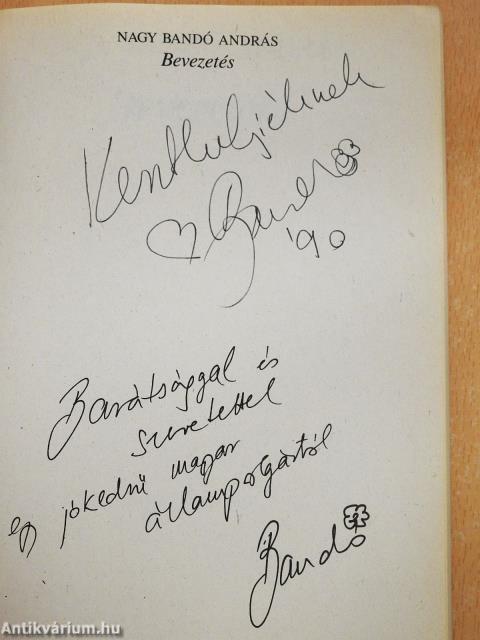 NAGY BANDÓ ANDRÁS
Bevezetés
Bandó
'90
Barátsággal és
szeretettel
egy jókedvű magyar
állampolgártól
Bandó
Antikvárium.hu